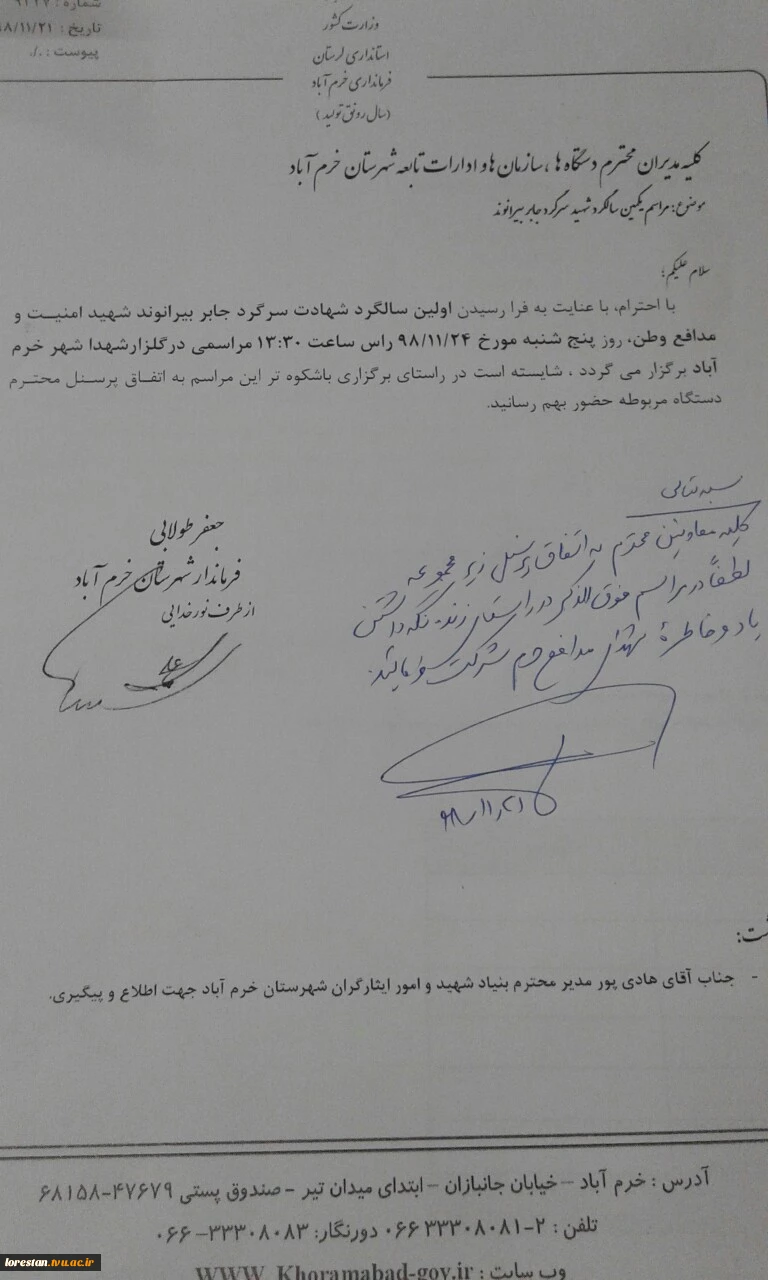 شماره : ۹۲۲۷
تاریخ : ۹۸/۱۱/۲۱
پیوست : ./.
وزارت کشور
استانداری لرستان
فرمانداری خرم آباد
(سال رونق تولید)
کلیه مدیران محترم دستگاه ها ، سازمان ها و ادارات تابعه شهرستان خرم آباد
موضوع: مراسم یکمین سالگرد شهید سرگرد جابر بیرانوند
سلام علیکم؛
با احترام، با عنایت به فرا رسیدن اولین سالگرد شهادت سرگرد جابر بیرانوند شهید امنیت و
مدافع وطن، روز پنج شنبه مورخ ۹۸/۱۱/۲۴ راس ساعت ۱۳:۳۰ مراسمی در گلزار شهدا شهر خرم
آباد برگزار می گردد ، شایسته است در راستای برگزاری باشکوه تر این مراسم به اتفاق پرسنل محترم
دستگاه مربوطه حضور بهم رسانید.
جعفر طولابی
فرماندار شهرستان خرم آباد
از طرف نورخدایی
بسمه تعالی
کلیه معاونین محترم به اتفاق پرسنل زیر مجموعه
لطفاً در مراسم فوق الذکر در راستای زنده نگه داشتن
یاد و خاطرهٔ شهدای مدافع حرم شرکت فرمایند.
۹۸/۱۱/۲۱
جناب آقای هادی پور مدیر محترم بنیاد شهید و امور ایثارگران شهرستان خرم آباد جهت اطلاع و پیگیری.
آدرس : خرم آباد – خیابان جانبازان – ابتدای میدان تیر – صندوق پستی ۴۷۶۷۹-۶۸۱۵۸
تلفن : ۲-۳۳۳۰۸۰۸۱ ۰۶۶ دورنگار: ۳۳۳۰۸۰۸۳-۰۶۶
وب سایت : WWW. Khoramabad-gov.ir
lorestan.tvu.ac.ir